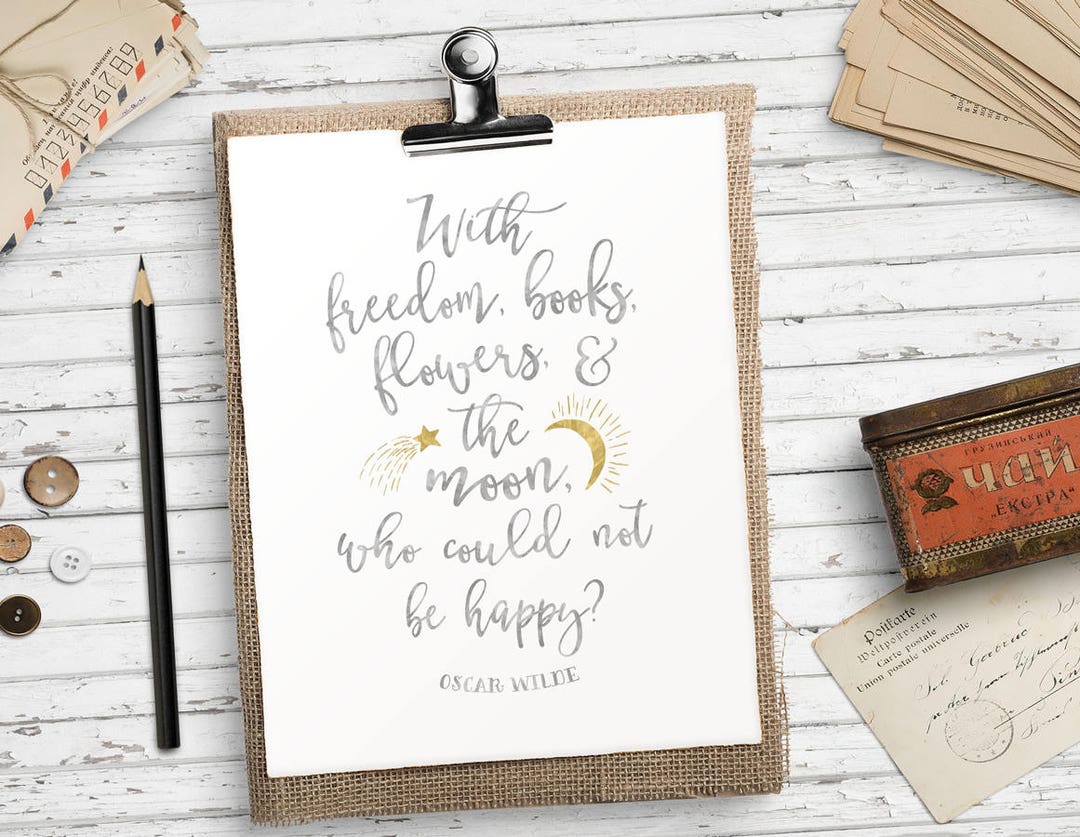 With
freedom, books,
flowers, &
the
moon,
who could not
be happy?
OSCAR WILDE
0123456789
ГРУЗИНСЬКИЙ
ЧАЙ
„ЕКСТРА“
Postkarte
Weltpostverein
Carte postale
Union postale universelle